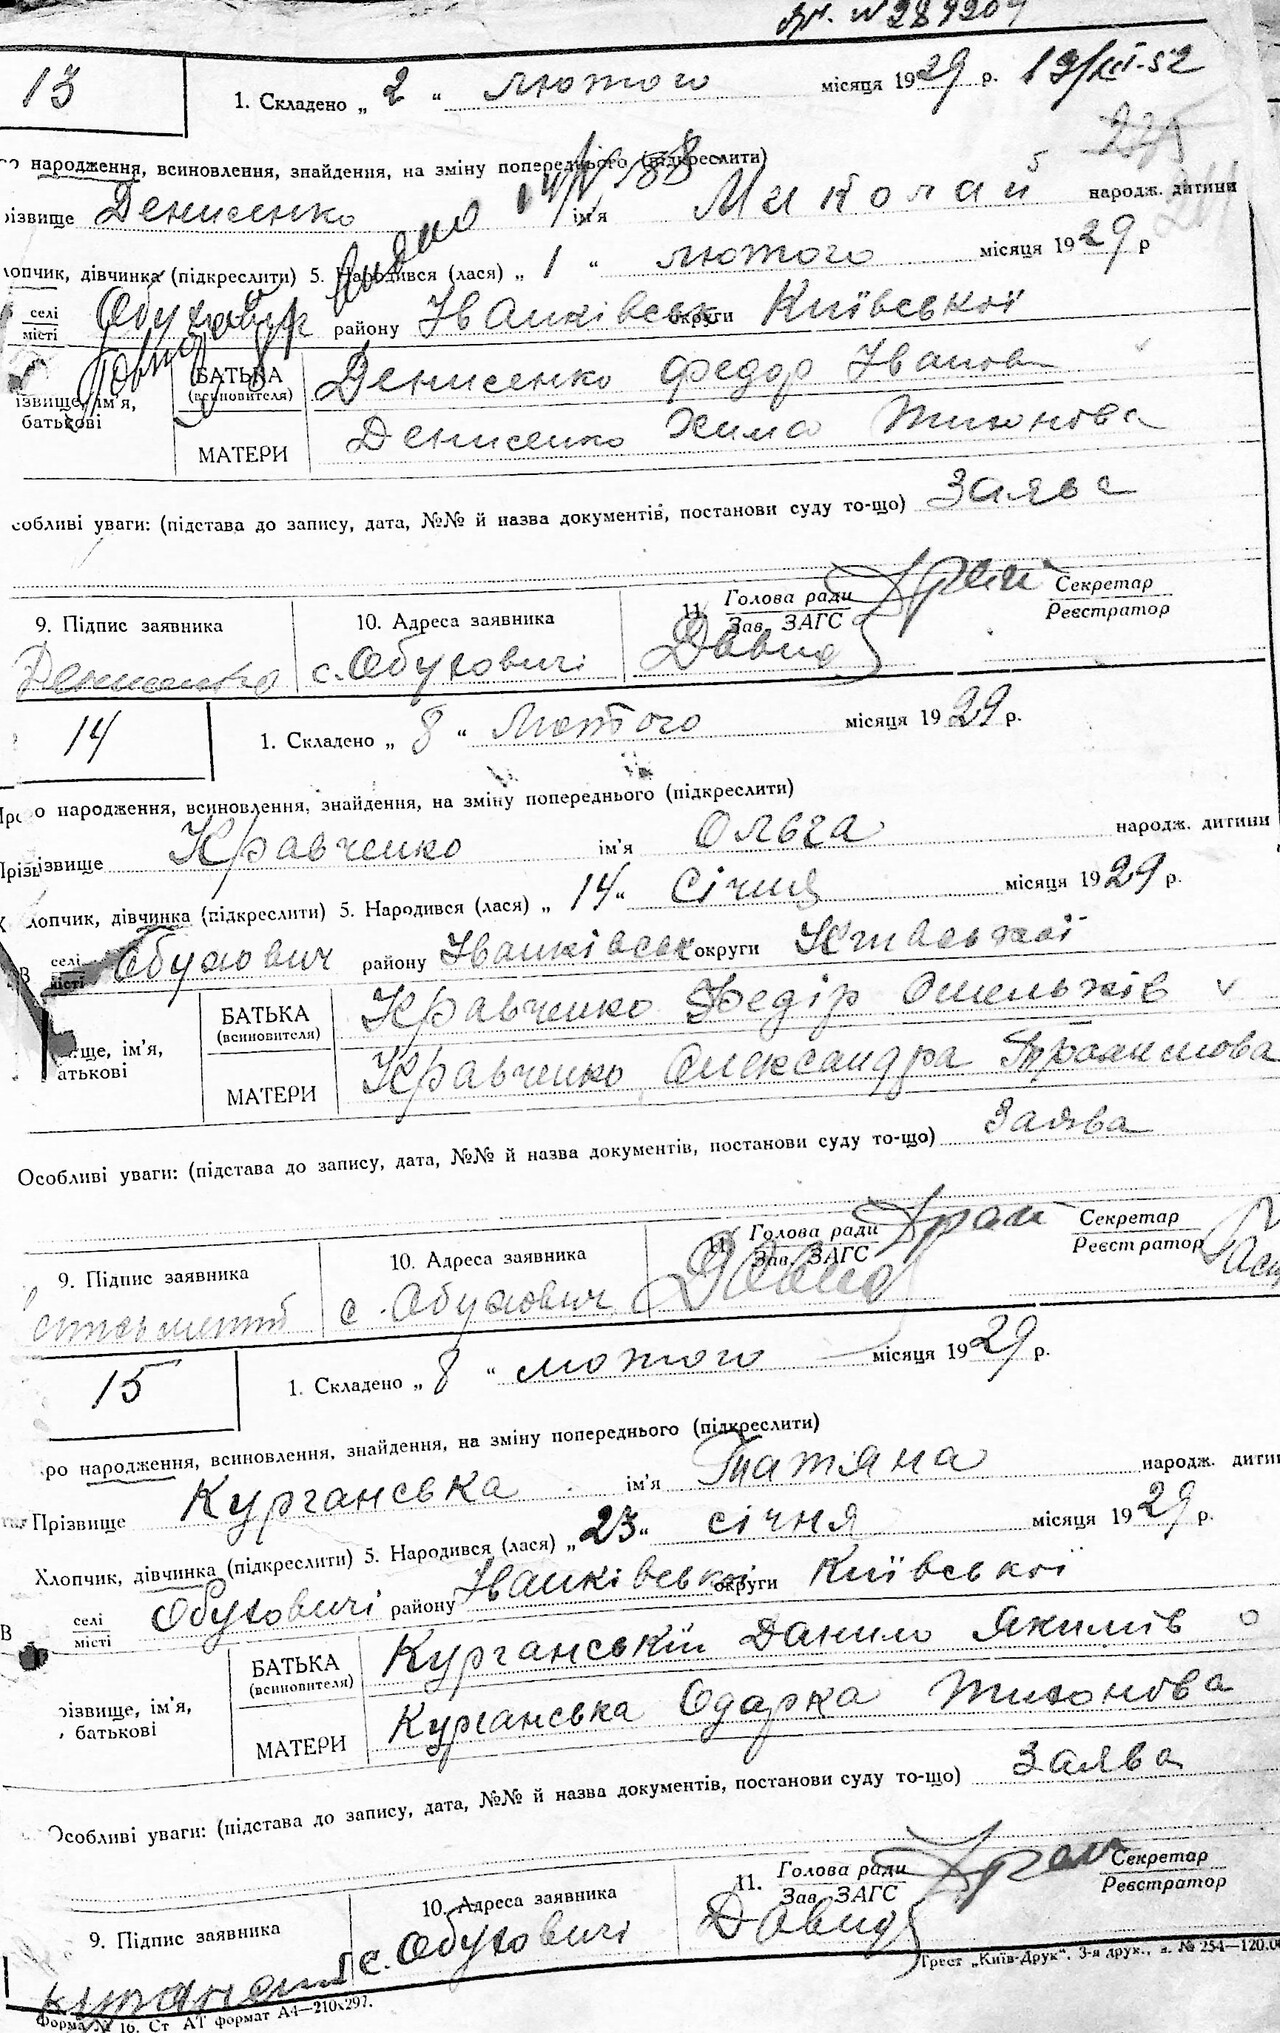 № 289209
13
1. Складено „ 2 “ лютого місяця 1929 р. 19/III-52
235
народження, всиновлення, знайдення, на зміну попереднього (підкреслити)
різвище Денисенко ім'я Миколай народж. дитини
лопчик, дівчинка (підкреслити) 5. Народився (лася) „ 1 “ лютого місяця 1929 р
селі
місті
Обуховичі району Іванківськ округи Київської
різвище, ім'я,
батькові
БАТЬКА
(всиновителя)
Денисенко Федор Іванов
МАТЕРИ
Денисенко Хима Тихонова
собливі уваги: (підстава до запису, дата, №№ й назва документів, постанови суду то-що) Заява
9. Підпис заявника
Денисенко
10. Адреса заявника
с. Обуховичі
11. Голова ради
Зав. ЗАГС
Секретар
Реєстратор
14
1. Складено „ 8 “ Лютого місяця 1929 р.
о народження, всиновлення, знайдення, на зміну попереднього (підкреслити)
Прізвище Кравченко ім'я Ольга народж. дитини
лопчик, дівчинка (підкреслити) 5. Народився (лася) „ 14 “ Січня місяця 1929 р.
В селі
місті
Обухович району Іванківськ округи Київської
ище, ім'я,
атькові
БАТЬКА
(всиновителя)
Кравченко Федір Омельків
МАТЕРИ
Кравченко Олександра
Особливі уваги: (підстава до запису, дата, №№ й назва документів, постанови суду то-що) Заява
9. Підпис заявника
10. Адреса заявника
с. Обухович
11. Голова ради
Зав. ЗАГС
Секретар
Реєстратор
15
1. Складено „ 8 “ лютого місяця 1929 р.
ро народження, всиновлення, знайдення, на зміну попереднього (підкреслити)
Прізвище Курганська ім'я Татяна народж. дитин
Хлопчик, дівчинка (підкреслити) 5. Народився (лася) „ 23 “ січня місяця 1929 р.
В селі
місті
Обуховичі району Іванківської округи Київської
різвище, ім'я,
батькові
БАТЬКА
(всиновителя)
Курганський Данило Якимів
МАТЕРИ
Курганська Одарка Тихонова
Особливі уваги: (підстава до запису, дата, №№ й назва документів, постанови суду то-що) Заява
9. Підпис заявника
10. Адреса заявника
с. Обуховичі
11. Голова ради
Зав. ЗАГС
Секретар
Реєстратор
Трест „Київ-Друк“. 3-я друк., з. № 254—120.0
Форма № 16. Ст АТ формат А4—210х297.